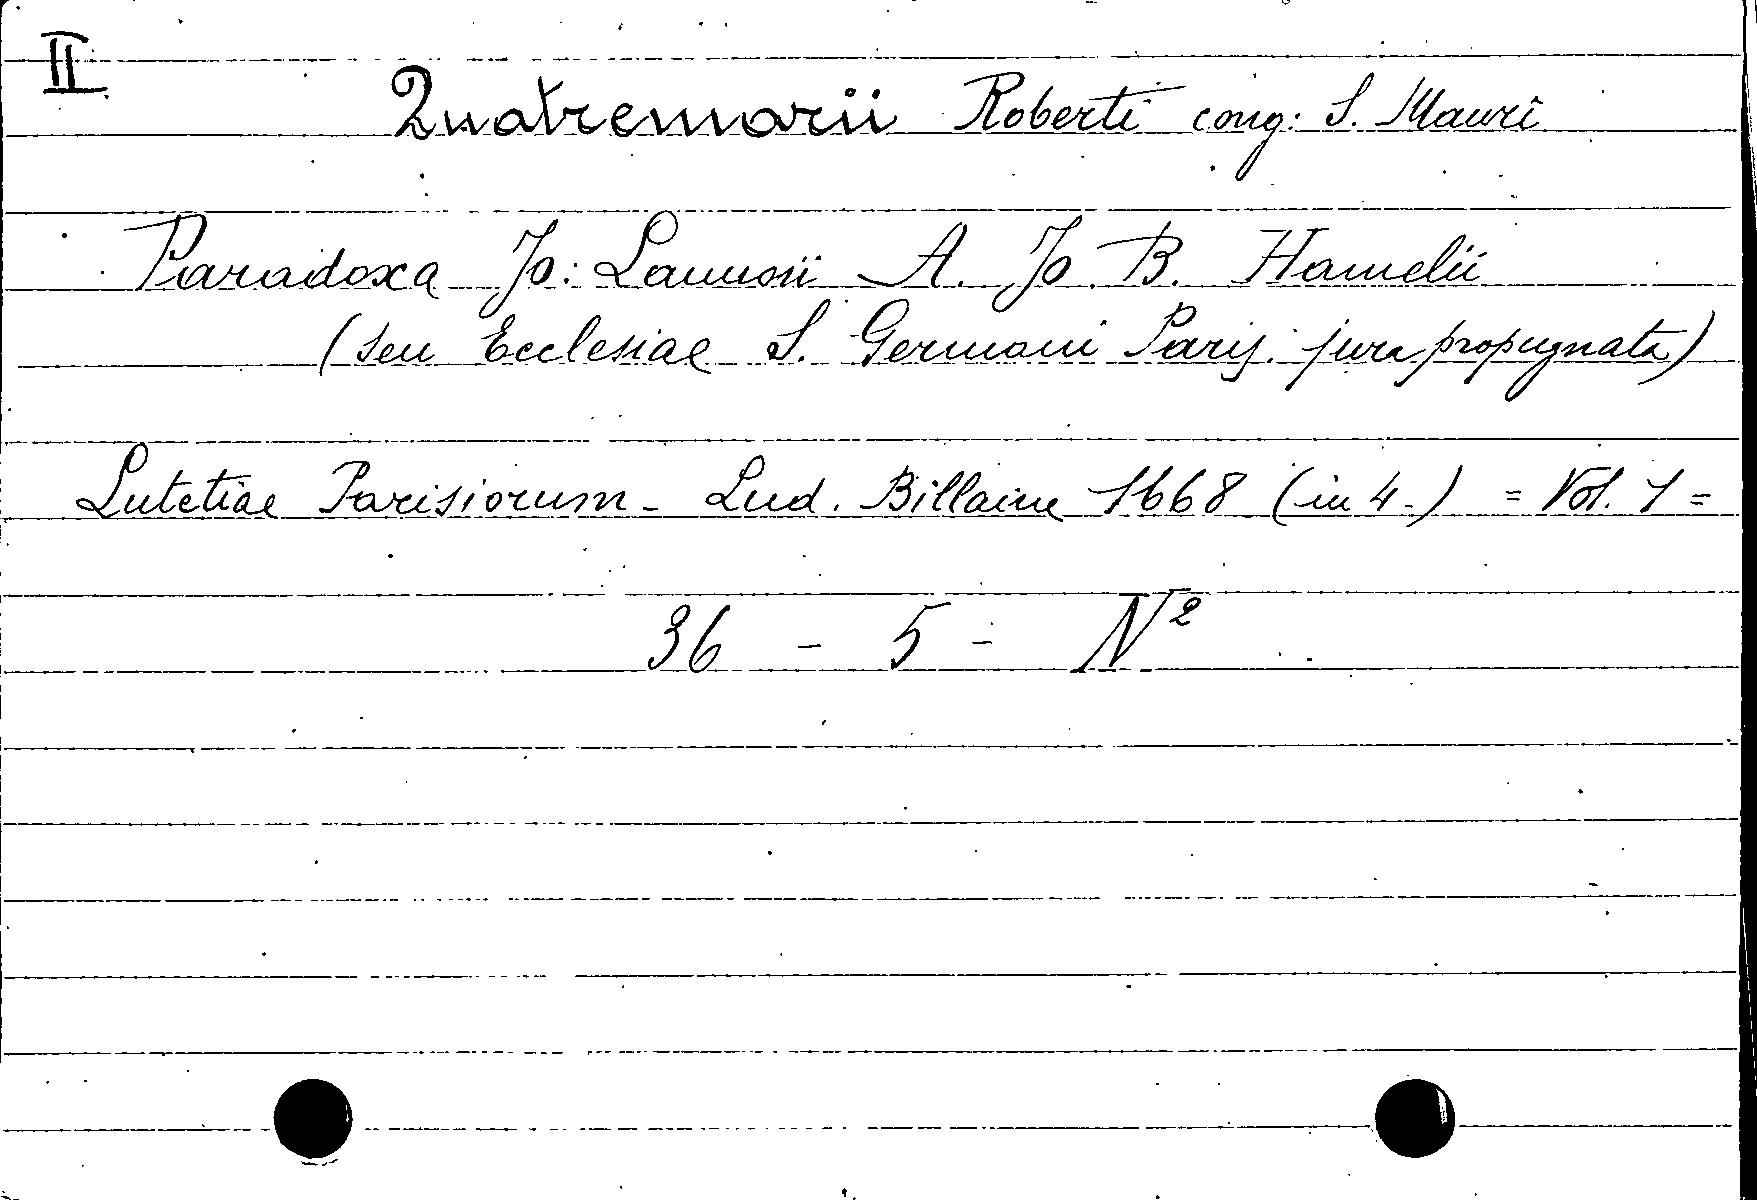 II
Quatremarii Roberti cong: S. Mauri
Paradoxa Jo: Launoii A. Jo. B. Hamelii
(seu Ecclesiae S. Germani Paris. jura propugnata)
Lutetiae Parisiorum - Lud. Billaine 1668 (in 4-) = Vol. 1 =
36 - 5 - N²